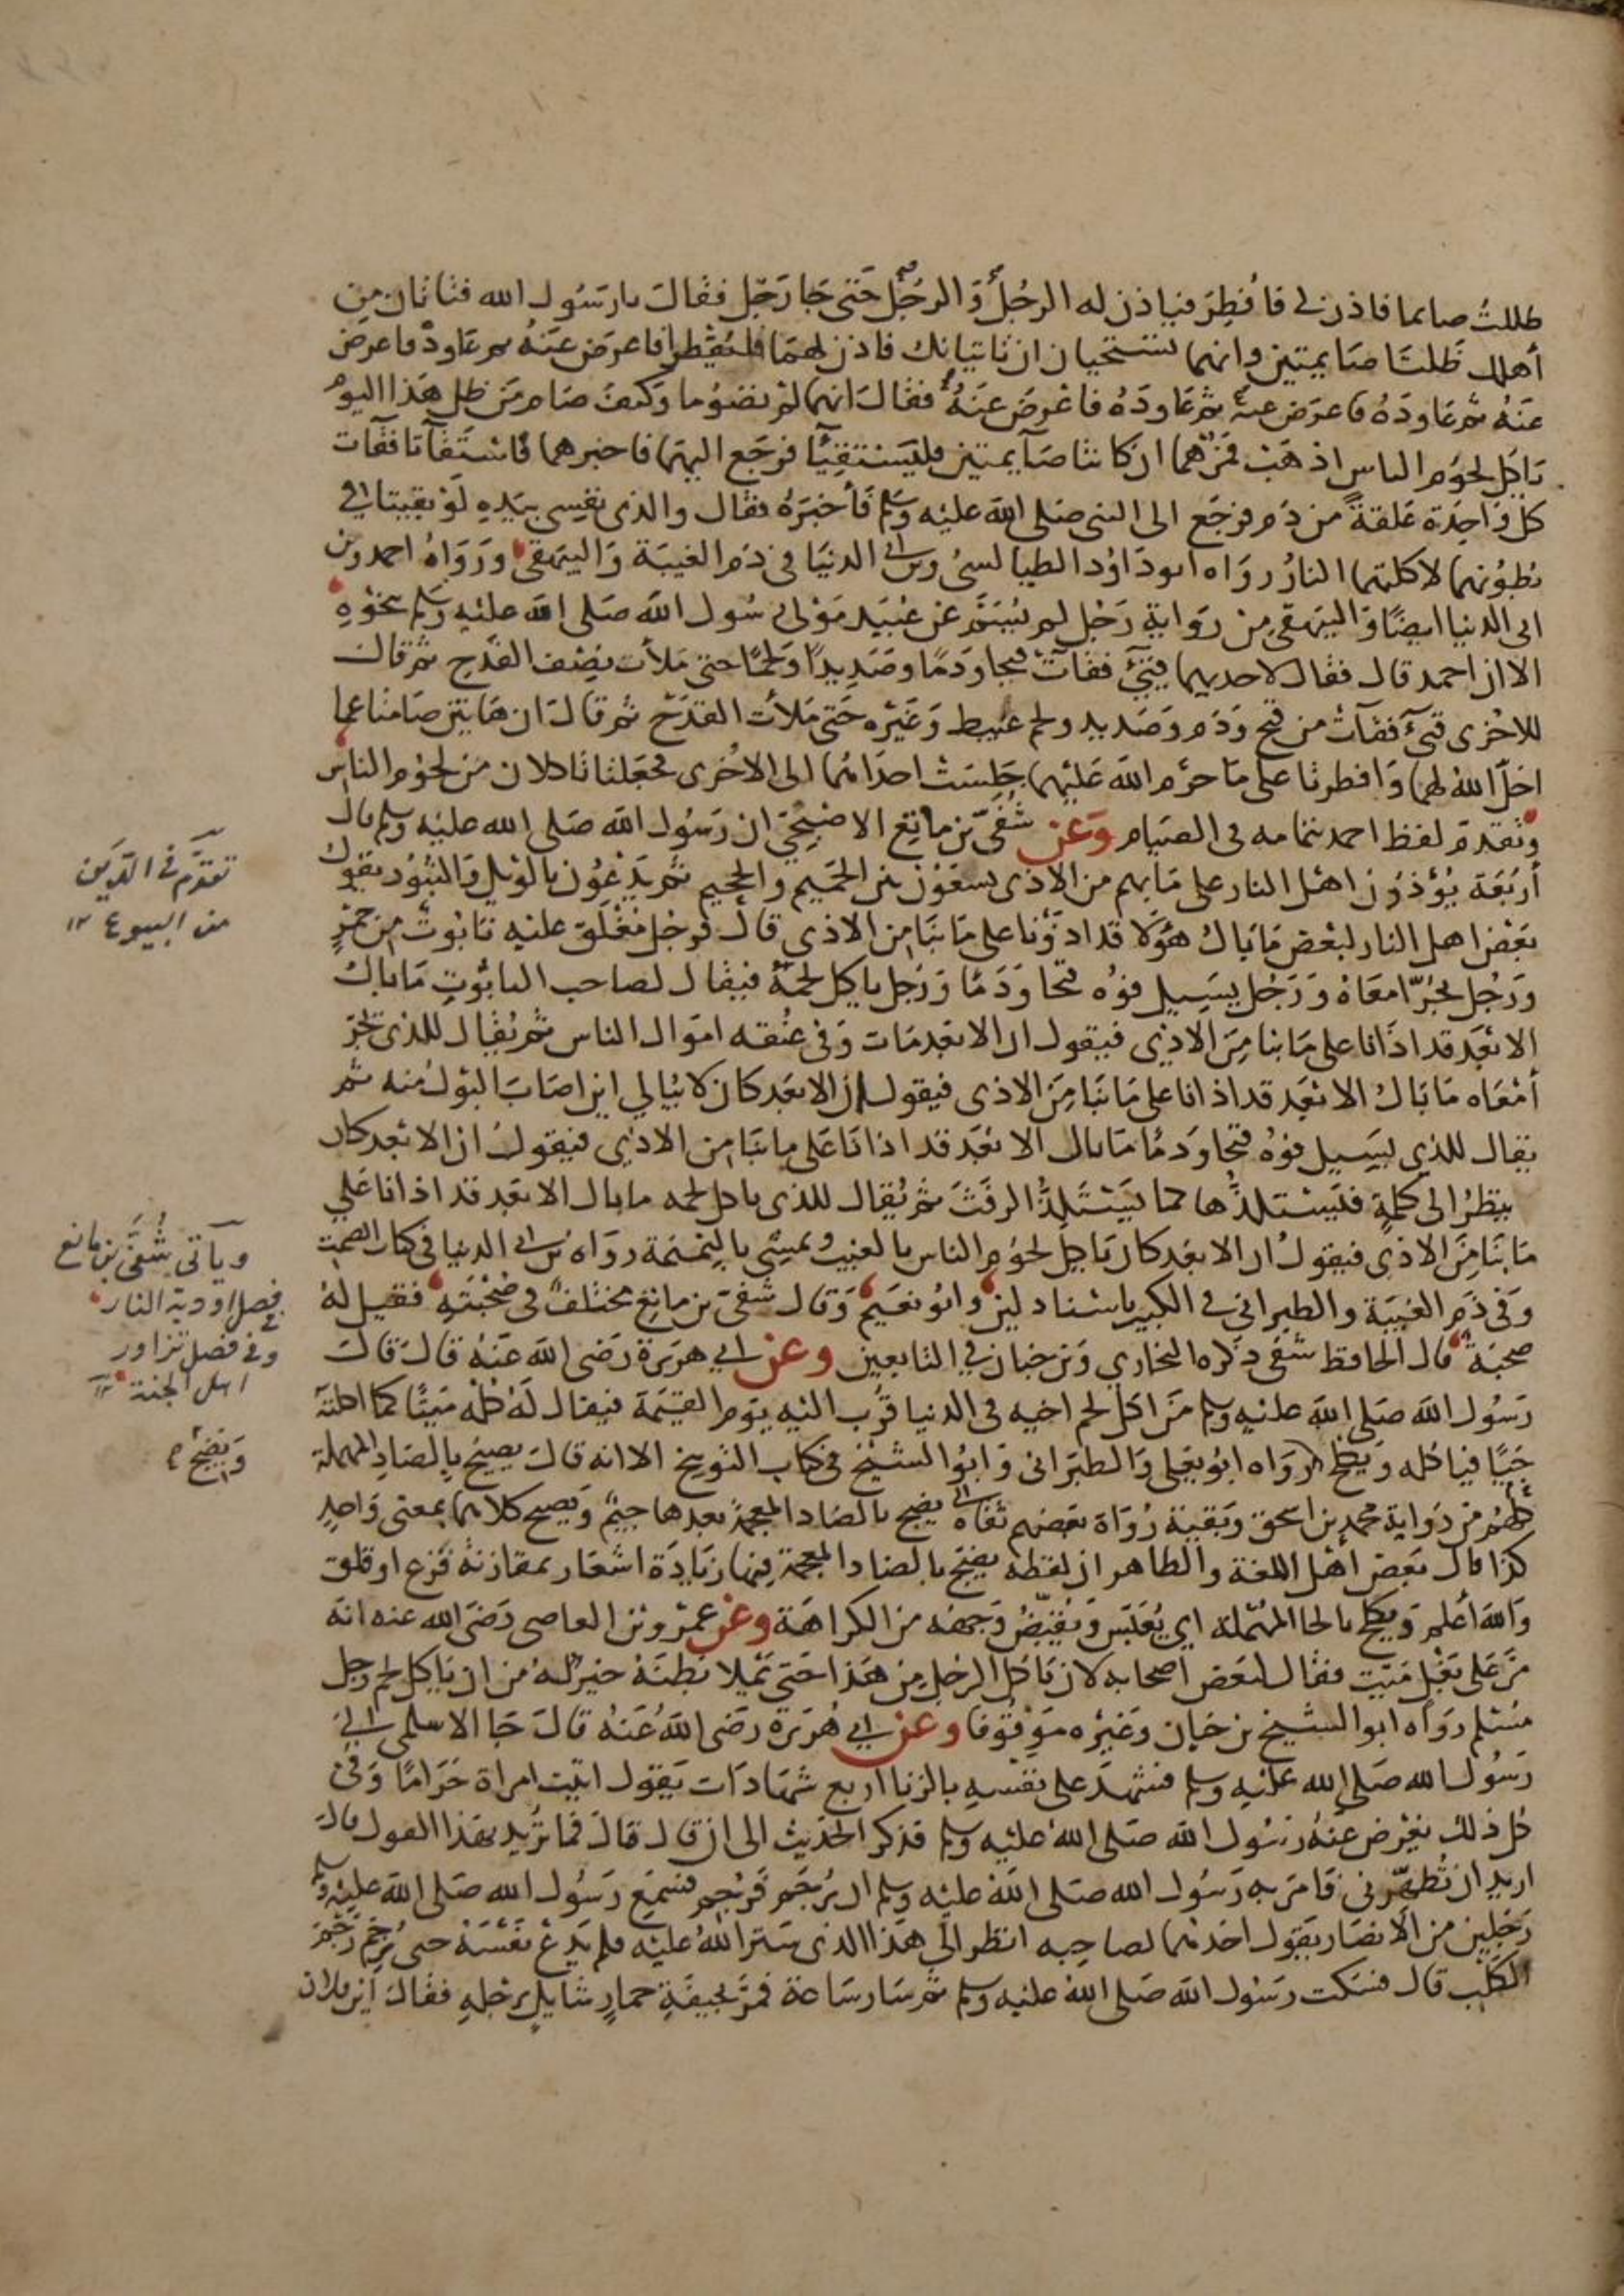 ظللتُ صايما فاذن لى فافُطِرَ فياذن له الرجُلُ وَالرجُل حَتى جَا رَجُل فقالَ يارسَوُل الله فتاتان مِن
أهلك ظَلتَا صَايمتين وانهما تستحيان ان تاتيانك فاذن لهمَا فلتفطرا فاعرَض عَنهُ ثم عَاودهُ فاعرض
عَنهُ ثم عَاودَهُ فاعرَض عنهُ ثم عَاودَهُ فاعْرضَ عَنهُ فقالَ انهما لم تصُوما وَكيفَ صَام مَن ظل هَذا اليومَ
يَاكل لحوُم الناس اذهَبْ فمُرْهُما ان كانتا صَآيمتين فليَستقيئَا فرجَع اليهَما فاخبرهما فاستقآتا فقآت
كل وَاحِدَة عَلقةً من دَم فرجَع الى النبى صَلى الله عليْه وَسلم فأخبَرهُ فقال والذى نفسِى بيَدِهِ لَوْ بقيتا فى
بُطوُنهما لاكلتهما النارُ رواه ابو دَاوُد الطيالسىُ وابن ابى الدنيَا فى ذم الغيبَة وَالبيهقى وَرَوَاهُ احمد وبن
ابى الدنيا ايضًا وَالبيهَقى مِنْ رِوَايةِ رَجُل لم يُسَمَّ عَن عُبَيْد مَوْلى رسُول الله صَلى الله عليْه وَسلم بنَحْوِهِ
الا ان احمد قال فقال لاحديهما قيئى فقآتْ قيحا وَدمًا وصَدِيدًا وَلحمًا حتى مَلأت نِصْف القدَح ثم قالَ
للاخرى قيئى فقآتْ من قيح وَدَم وَصَديد ولحم عَبيط وَغَيْره حَتى مَلأت القدَح ثم قالَ ان هَاتين صَامتا عما
احَلّ اللهُ لهما وَافطرتا على مَا حرَّم الله عَليْهما جَلسَتْ احدَاهُما الى الاخُرى فجعَلتا تاكلان مَن لحوُم الناسِ
وَتقدَمَ لفظ احمد بتمامه فى الصيام وَعَن شُفَىّ بن مَاتِع الاصْبَحِىّ ان رَسُول الله صَلى الله عليْه وَسلم قال
أربَعَة يُؤذوُن اهْل النار على مَا بهم من الاذى يسعَوْن بين الحَميم والجحيم ثم يَدْعُوُن بالوَيل وَالثبُوُر يقوُل
بَعْض اهل النار لبعْض مَا بَالُ هَؤلا قد اذوْنا على مَا بنَا من الاذى قال فرجُل مُغْلَق عليْه تابُوتٌ مِن جَمْرٍ
وَرَجُل يجُرّ امعَاهُ وَرَجُل يسَيِيل فوُه قيحا وَدَمًا وَرَجُل ياكل لحمَهُ فيقال لصَاحب التابُوتِ مَا بالُ
الابْعَد قد اذانا على مَا بنا مِنَ الاذى فيقول ان الابعَد مَات وَفى عُنقه اموَال الناس ثم يُقال للذى يجُر
أمْعَاه مَا بَالُ الابْعَد قد اذانا على مَا بنَا مِنَ الاذى فيقول ان الابعَد كان لا يُبالى اين اصَابَ البَوْلُ منه ثم
يقال للذى يسيِيل فوُهُ قيحا وَدمًا مَا بال الابْعَد قد اذانَا عَلى ما بنَا من الاذى فيقولُ ان الابعَد كان
ينظرُ الى كلمةٍ فيَستلذُّها كما يَسْتَلِذُّ الرفَثَ ثم يُقال للذى ياكل لحمه ما بال الابعَد قد اذانا عَلى
مَا بنَا مِنَ الاذى فيقولُ ان الابعَد كان يَاكل لحوُم الناس بالغيبَة وَيمشى بالنميمَة رواه بن ابى الدنيا فى كتاب الصمت
وَفى ذَم الغيبَة والطبرانى فى الكبير باسْنادٍ لين وابُو نعَيم وَقال شُفىّ بن ماتِع مختلفٌ فى صُحْبَتهِ فقيل لهُ
صحبَةٌ قال الحافظ شفى ذكَره البخارى وَبن حبَان فى التابعين وعَن ابى هرَيرة رَضى الله عَنهُ قالَ قالَ
رَسُول الله صَلى الله عليْه وسلم مَن اكل لحم اخيه فى الدنيا قرّب اليْه يَوَم القيَمة فيقال لَهُ كلهُ مَيتًا كما اكلتهُ
حَيًّا فياكله ويكلح رَوَاه ابُو يعلى وَالطبرَانى وَابُو الشيخ فى كتاب التوبيخ الا انه قال يصيح بالصَاد المهملة
كلهُم مِن رَوَايَة محمد بن اسحق وَبقية رُوَاة بَعضهم ثقات يضج بالضَاد المعجمة بعدها جيمٌ وَيصيح كلاهما بمعنى وَاحِدٍ
كذا قال بَعض اهْل اللغة والظاهر ان لفظه يضج بالضَاد المعجمة فيْها زيَادَة اشعَار بمقارنة فزع او قلق
وَالله أعْلم وَيكلح بالحا المهْملة اى يُعَبّس وَيُقبّضُ وَجهَهُ من الكراهَة وعَن عمرو بن العاصى رَضى الله عنه انهُ
مَرّ على بَغْل مَيت فقال لبعض اصحَابه لان يَاكل الرجُل مِن هَذا حَتى يملا بَطنَهُ خيرٌ لهُ من ان يَاكل لحم رَجل
مُسْلم روَاه ابو الشيخ بن حبَان وَغيْره مَوْقُوفا وعَن ابى هُريَرة رَضى اللهُ عَنهُ قالَ جَا الاسْلمى الى
رَسُول الله صَلى الله عليْه وسلم فشهَدَ على نفسِهِ بالزنا اربع شهادَات يَقول اتيت امراة حَرَامًا وَفى
كل ذلك يعْرض عنهُ رَسُول الله صَلى اللهُ عليْه وسلم فذكر الحَديث الى ان قال قالَ فما ترُيد بهَذا القول قال
اريد ان تُطهّرنى فَامَر به رَسُول الله صَلى اللهُ عليْه وَسلم ان يُرجَم فرُجم فسَمِعَ رَسُول الله صَلى الله عليْه وسلم
رَجلين من الانصَار يقول احَدهُما لصاحِبه انظر الى هَذا الذى سَتر اللهُ عليْه فلم يَدعْ نفْسَهُ حتى رُجِم رَجْمَ
الكلْب قال فسَكت رَسُول الله صَلى اللهُ عليْه وسلم ثم سَار سَاعة فمَرّ بجيفَةِ حمارٍ شايلٍ برجْلهِ فقالَ أين فلان
تقدَّم فى الدَّين
من البيوع ١٢
ويأتى شُفَىّ بن ماتع
فى فصل اودية النار
وفى فصل تزاور
اهل الجنة ١٢
وَيَضِجّ م